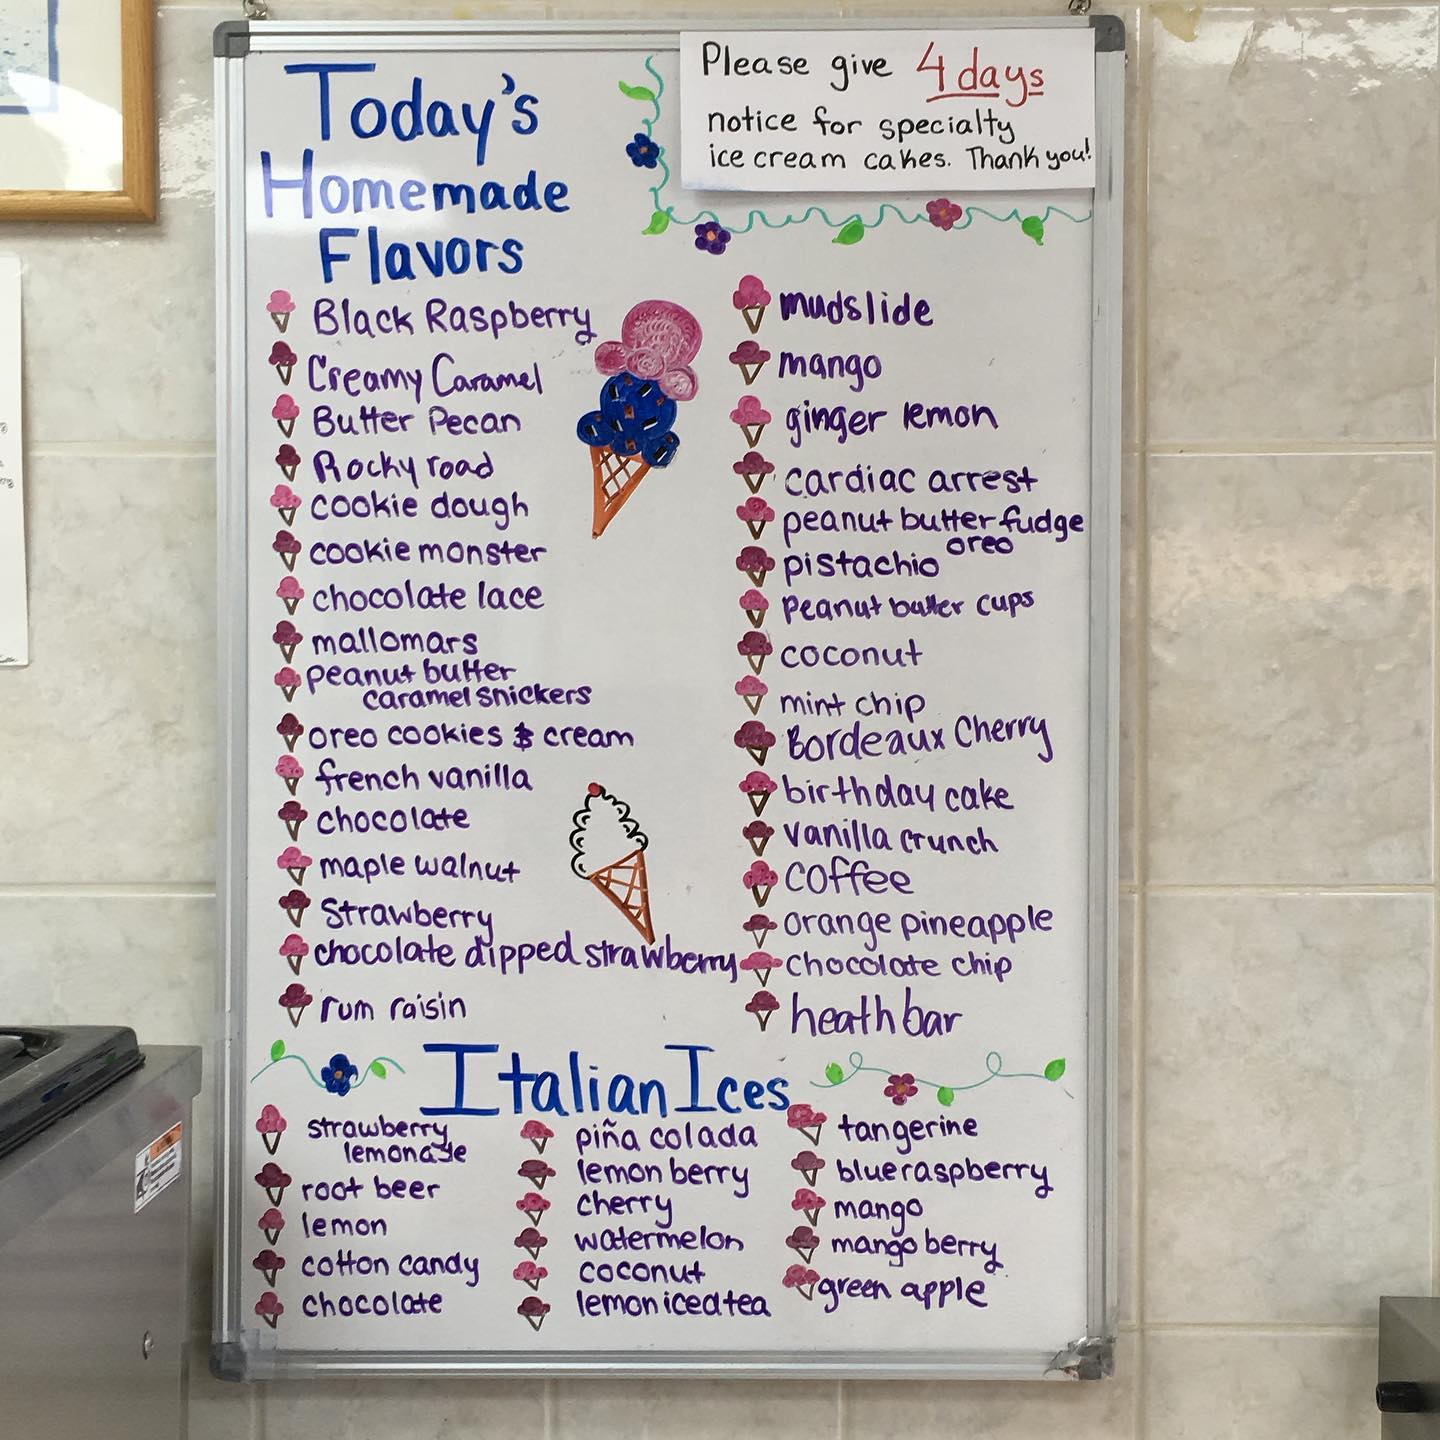 Today's
Homemade
Flavors
Please give 4 days
notice for specialty
ice cream cakes. Thank you!
Black Raspberry
Creamy Caramel
Butter Pecan
Rocky road
cookie dough
cookie monster
chocolate lace
mallomars
peanut butter
caramel snickers
oreo cookies & cream
french vanilla
chocolate
maple walnut
Strawberry
chocolate dipped strawberry
rum raisin
mudslide
mango
ginger lemon
cardiac arrest
peanut butter fudge
oreo
pistachio
Peanut butter cups
coconut
mint chip
Bordeaux Cherry
birthday cake
vanilla crunch
coffee
orange pineapple
chocolate chip
heath bar
Italian Ices
strawberry
lemonade
root beer
lemon
cotton candy
chocolate
piña colada
lemon berry
cherry
watermelon
coconut
lemon iced tea
tangerine
blue raspberry
mango
mango berry
green apple